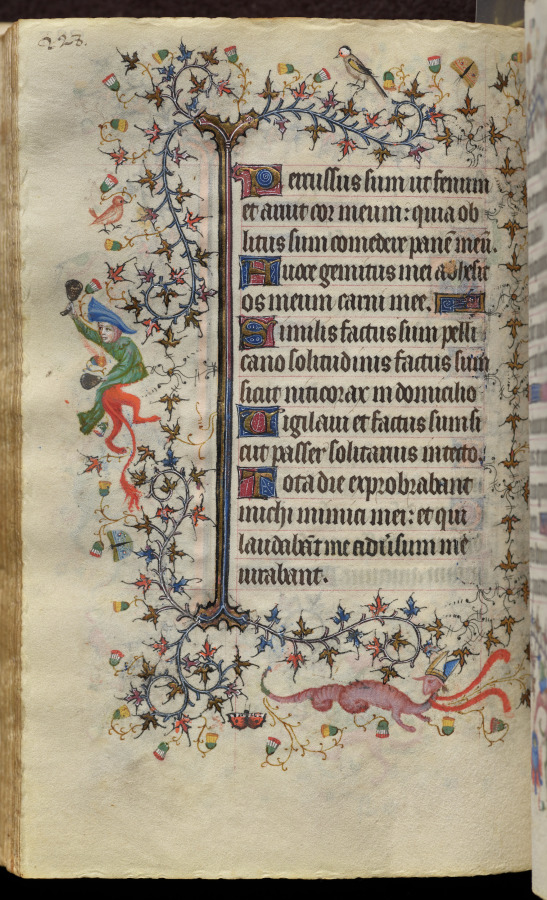 223.
Percussus sum ut fenum
et aruit cor meum: quia ob
litus sum comedere panē meū.
A uoce gemitus mei adhesit
os meum carni mee.
Similis factus sum pelli
cano solitudinis factus sum
sicut niticorax in domicilio
Uigilaui et factus sum si
cut passer solitarius in tecto.
Tota die exprobrabant
michi inimici mei: et qui
laudabāt me aduʼsum me
iurabant.